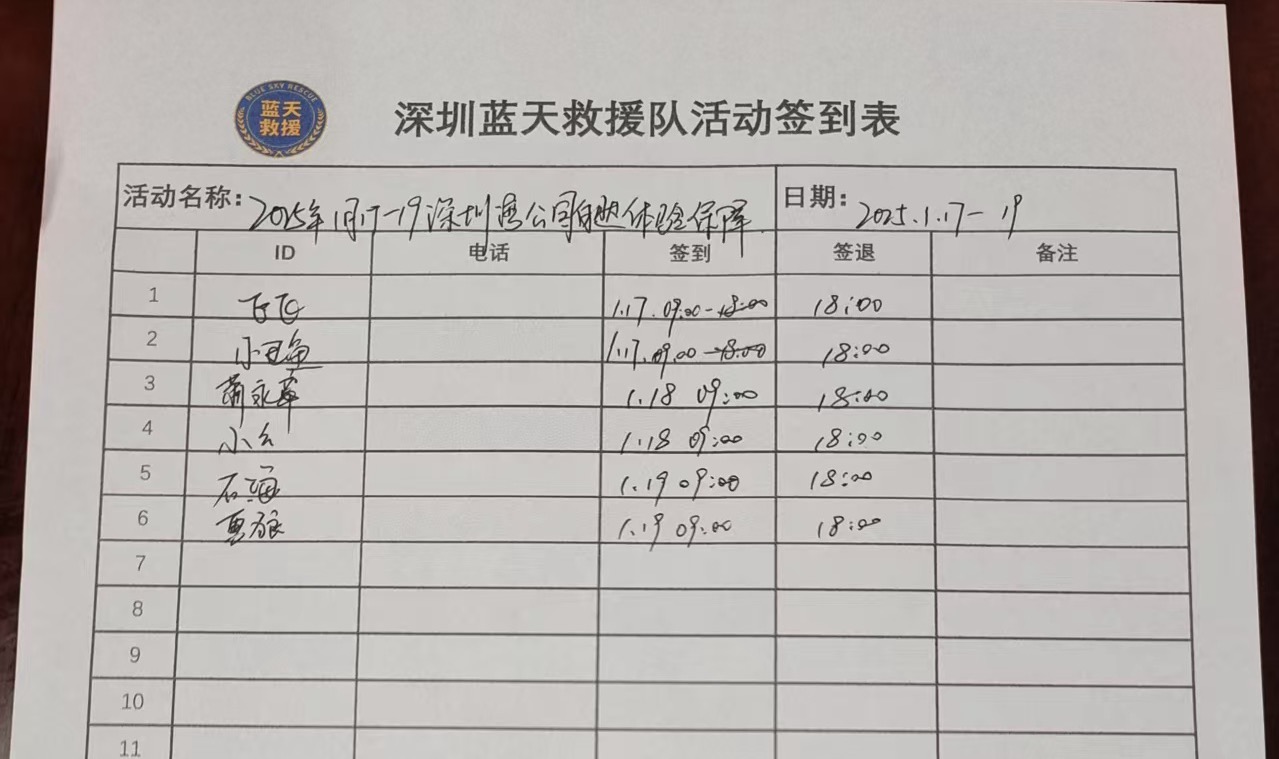 BLUE SKY RESCUE
蓝天
救援
深圳蓝天救援队活动签到表
活动名称: 2025年1月17-19深圳湾公园体验保障 日期: 2025.1.17-19
ID 电话 签到 签退 备注
1 飞飞 1.17. 09:00-18:00 18:00
2 小丑鱼 1.17. 09:00-18:00 18:00
3 萧永革 1.18 09:00 18:00
4 小幺 1.18 09:00 18:00
5 石海 1.19 09:00 18:00
6 1.19 09:00 18:00
7
8
9
10
11